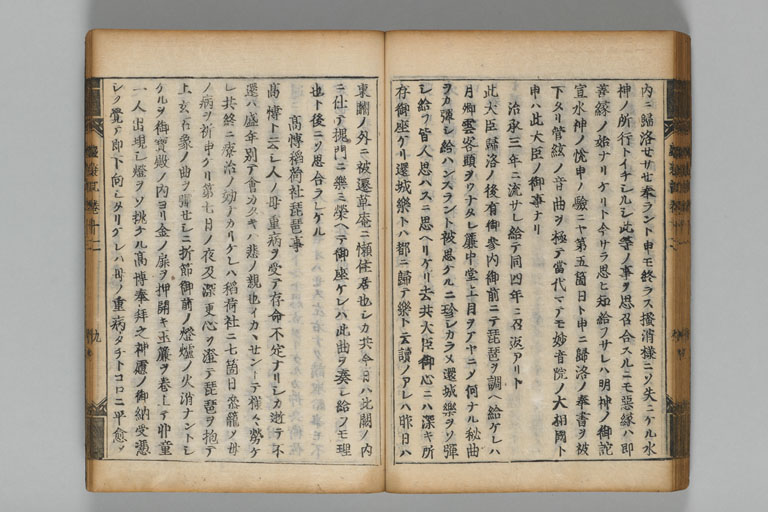 内ニ歸洛セサセ奉ラント申モ終ラス掻消樣ニソ失ニケル水
神ノ所行トイチシルシ此等ノ事ヲ思召合スルニモ惡縁ハ即
善縁ノ始ナリケリト今サラ思ヒ知給フサレハ明神ノ御詫
宣水神ノ悦申ノ驗ニヤ第五箇日ト申ニ歸洛ノ奉書ヲ被
下タリ管絃ノ音曲ヲ極テ當代マテモ妙音院ノ大相國ト
申ハ此大臣ノ御事ナリ
治承三年ニ流サレ給テ同四年ニ召返アリト
此大臣歸洛ノ後有御參内御前ニテ琵琶ヲ調ヘ給ケレハ
月卿雲客頭ヲウナタレ簾中堂上目ヲアヤニソ何ナル秘曲
ヲカ彈シ給ハンスラント被思ケルニ珍シカラヌ還城樂ヲソ彈
シ給フ皆人思ハスニ思ヘリケリ去共大臣御心ニハ深キ所
存御座ケリ還城樂トハ都ニ歸テ樂ト云讀ノアレハ昨日ハ
東關ノ外ニ被遷草庵ニ懶住居也シカ共今日ハ此關ノ内
ニ仕テ槐門ニ樂ミ榮ヘテ御座ケレハ此曲ヲ奏シ給フモ理
也ト後ニソ思合ラレケル
高博稻荷社琵琶事
高博ト云シ人ノ母重病ヲ受テ存命不定ナリシカ逝テ不
還ハ盛年別テ會カタキハ悲ノ親也イカヽセントテ樣々勞ケ
レ共終ニ療治ノ効ナカリケレハ稻荷社ニ七箇日參籠ソ母
ノ病ヲ祈申ケリ第七日ノ夜及深更心ヲ澄テ琵琶ヲ抱テ
上玄石象ノ曲ヲ彈セシニ折節御前ノ燈爐ノ火消ナントシ
ケルヲ御寳殿ノ内ヨリ金ノ扉ヲ押開キ玉簾ヲ卷上テ卭童
一人出現シ燈ヲソ挑ケル高博奉拜之神慮ノ御納受憑
シク覺テ即下向シタリケレハ母ノ重病タチトコロニ平愈ソ